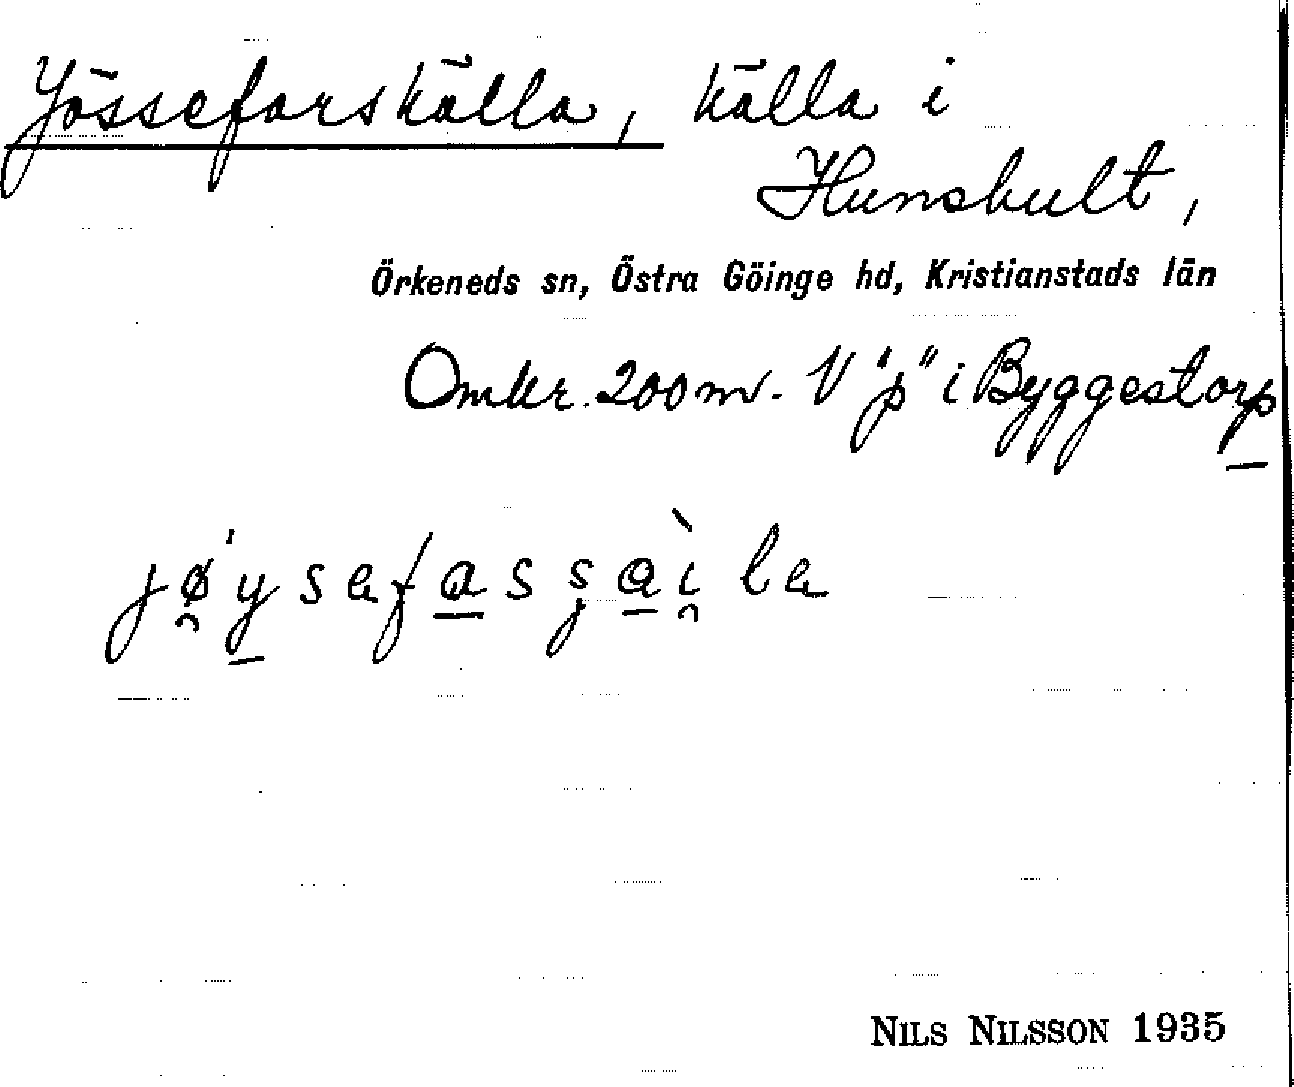 Jösseforskälla, källa i
Hunshult,
Örkeneds sn, Östra Göinge hd, Kristianstads län
Omkr. 200 m. V "p" i Byggestorp
Nils Nilsson 1935